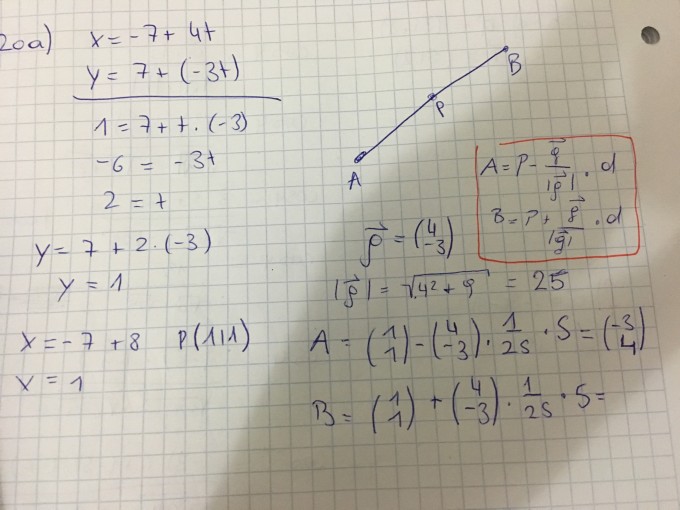 20a)
x = -7 + 4t
y = 7 + (-3t)
1 = 7 + t · (-3)
-6 = -3t
2 = t
y = 7 + 2 · (-3)
y = 1
x = -7 + 8 P(1|1)
x = 1
A
P
B
A = P - g⃗/|g⃗| · d
B = P + g⃗/|g⃗| · d
g⃗ = (4 -3)
|g⃗| = √(4² + 9) = 25
A = (1 1) - (4 -3) · 1/25 · 5 = (-3 4)
B = (1 1) + (4 -3) · 1/25 · 5 =